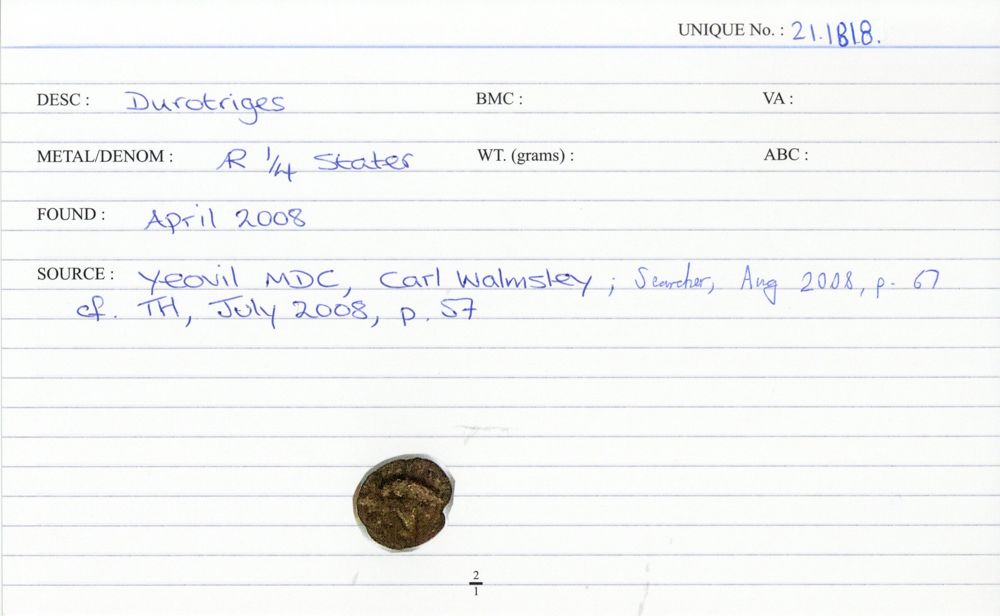 UNIQUE No. : 21.1818.
DESC : Durotriges BMC : VA :
METAL/DENOM : R 1/4 Stater WT. (grams) : ABC :
FOUND : April 2008
SOURCE : Yeovil MDC, Carl Walmsley ; Searcher, Aug 2008, p. 67
cf. TH, July 2008, p. 57
2
1